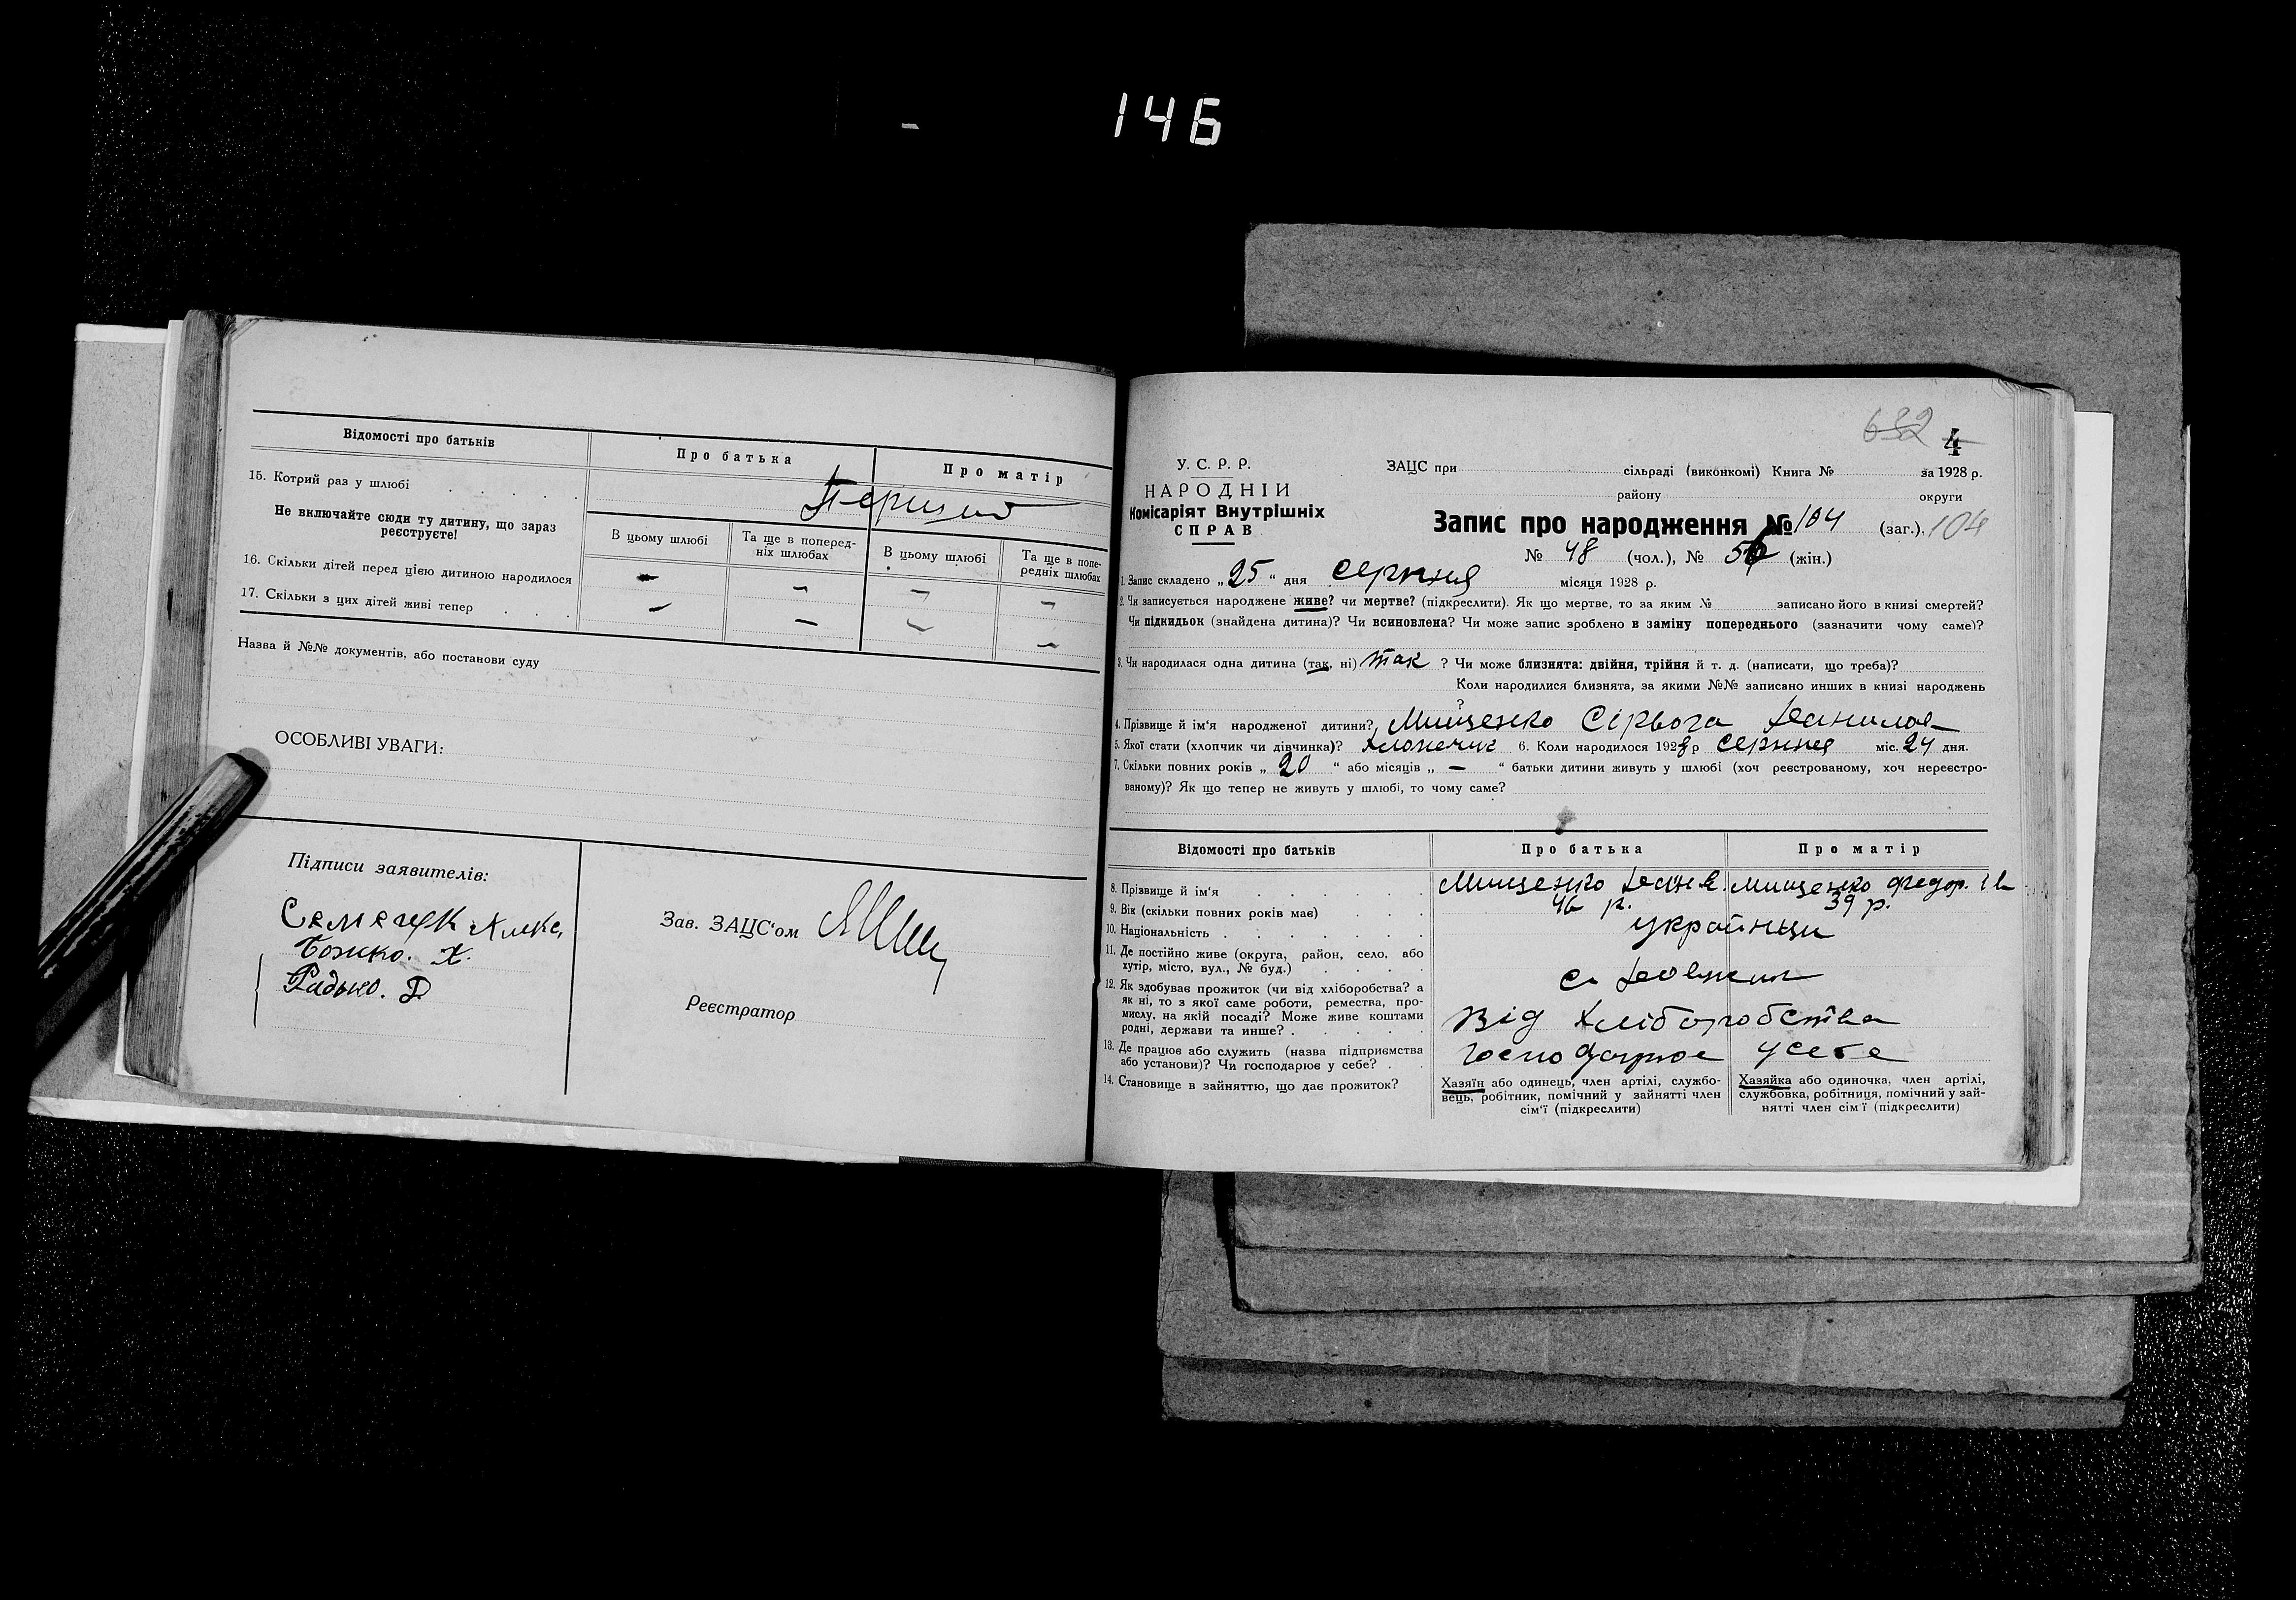 146
Відомості про батьків
Про батька
Про матір
15. Котрий раз у шлюбі
Перший
Не включайте сюди ту дитину, що зараз
реєструєте!
В цьому шлюбі
Та ще в поперед-
ніх шлюбах
В цьому шлюбі
Та ще в попе-
редніх шлюбах
16. Скільки дітей перед цією дитиною народилося
- - - -
17. Скільки з цих дітей живі тепер
- - - -
Назва й №№ документів, або постанови суду
ОСОБЛИВІ УВАГИ:
Підписи заявителів:
Божко. Х.
Радько. Д
Зав. ЗАЦС'ом
Реєстратор
632 4
У. С. Р. Р.
НАРОДНІЙ
Комісаріят Внутрішніх
СПРАВ
ЗАЦС при сільраді (виконкомі) Книга № за 1928 р.
району округи
Запис про народження № 104 (заг.), 104
№ 48 (чол.), № 56 (жін.)
1. Запис складено „25“ дня серпня місяця 1928 р.
2. Чи записується народжене живе? чи мертве? (підкреслити). Як що мертве, то за яким № записано його в книзі смертей?
Чи підкидьок (знайдена дитина)? Чи всиновлена? Чи може запис зроблено в заміну попереднього (зазначити чому саме)?
3. Чи народилася одна дитина (так, ні) так ? Чи може близнята: двійня, трійня й т. д. (написати, що треба)?
Коли народилися близнята, за якими №№ записано инших в книзі народжень
?
4. Прізвище й ім'я народженої дитини? Мищенко Сірьога Данилов
5. Якої стати (хлопчик чи дівчинка)? хлопчик 6. Коли народилося 1928 р серпня міс. 24 дня.
7. Скільки повних років „20“ або місяців „-“ батьки дитини живуть у шлюбі (хоч реєстрованому, хоч нереєстро-
ваному)? Як що тепер не живуть у шлюбі, то чому саме?
Відомості про батьків
Про батька
Про матір
8. Прізвище й ім'я
Мищенко Мищенко Федор.
9. Вік (скільки повних років має)
46 р. 39 р.
10. Національність
українци
11. Де постійно живе (округа, район, село, або
хутір, місто, вул., № буд.)
с.
12. Як здобуває прожиток (чи від хліборобства? а
як ні, то з якої саме роботи, ремества, про-
мислу, на якій посаді? Може живе коштами
родні, держави та инше?
Від хліборобства
13. Де працює або служить (назва підприємства
або установи)? Чи господарює у себе?
Господарює у себе
14. Становище в зайняттю, що дає прожиток?
Хазяїн або одинець, член артілі, службо-
вець, робітник, помічний у зайнятті член
сім'ї (підкреслити)
Хазяйка або одиночка, член артілі,
службовка, робітниця, помічний у зай-
нятті член сім'ї (підкреслити)